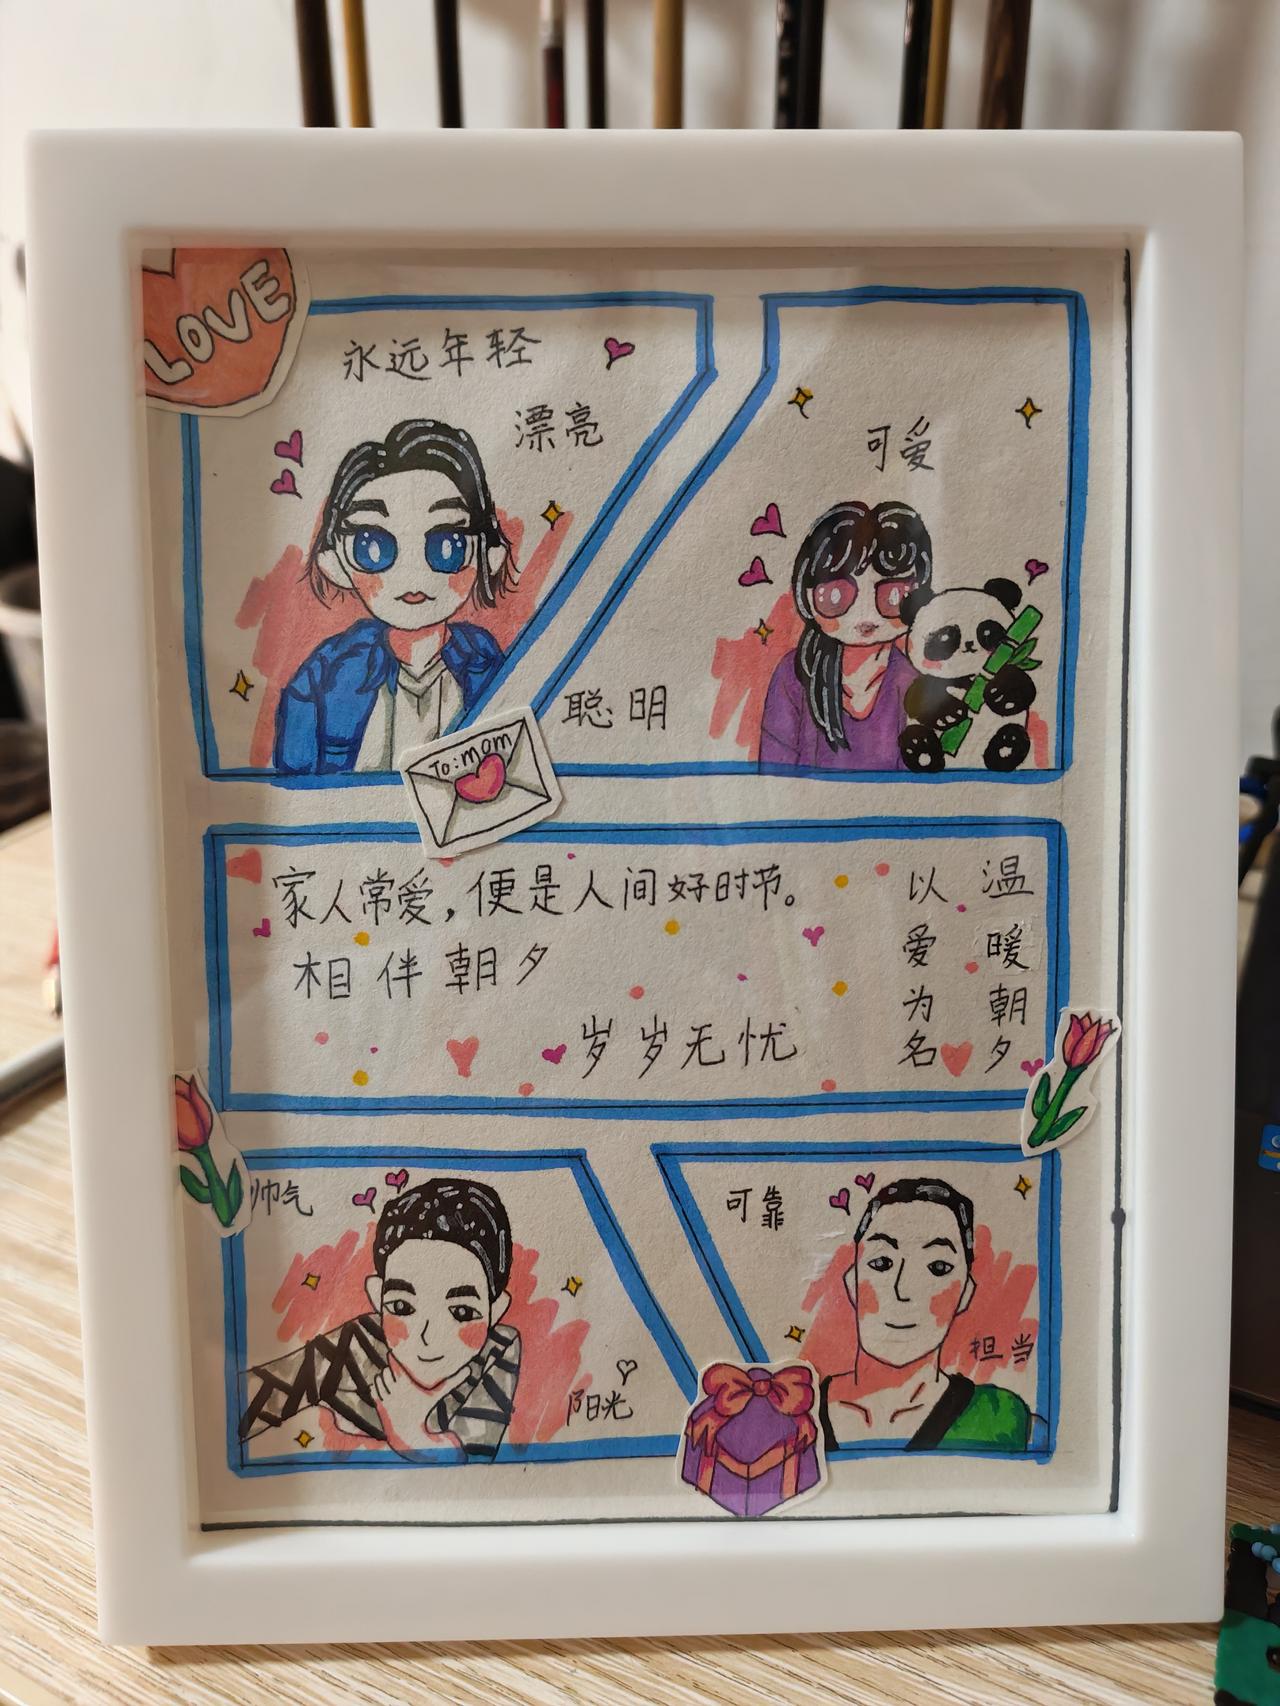 LOVE
永远年轻
漂亮
可爱
聪明
To:mom
家人常爱，便是人间好时节。
相伴朝夕
岁岁无忧
温暖朝夕
以爱为名
帅气
阳光
可靠
担当